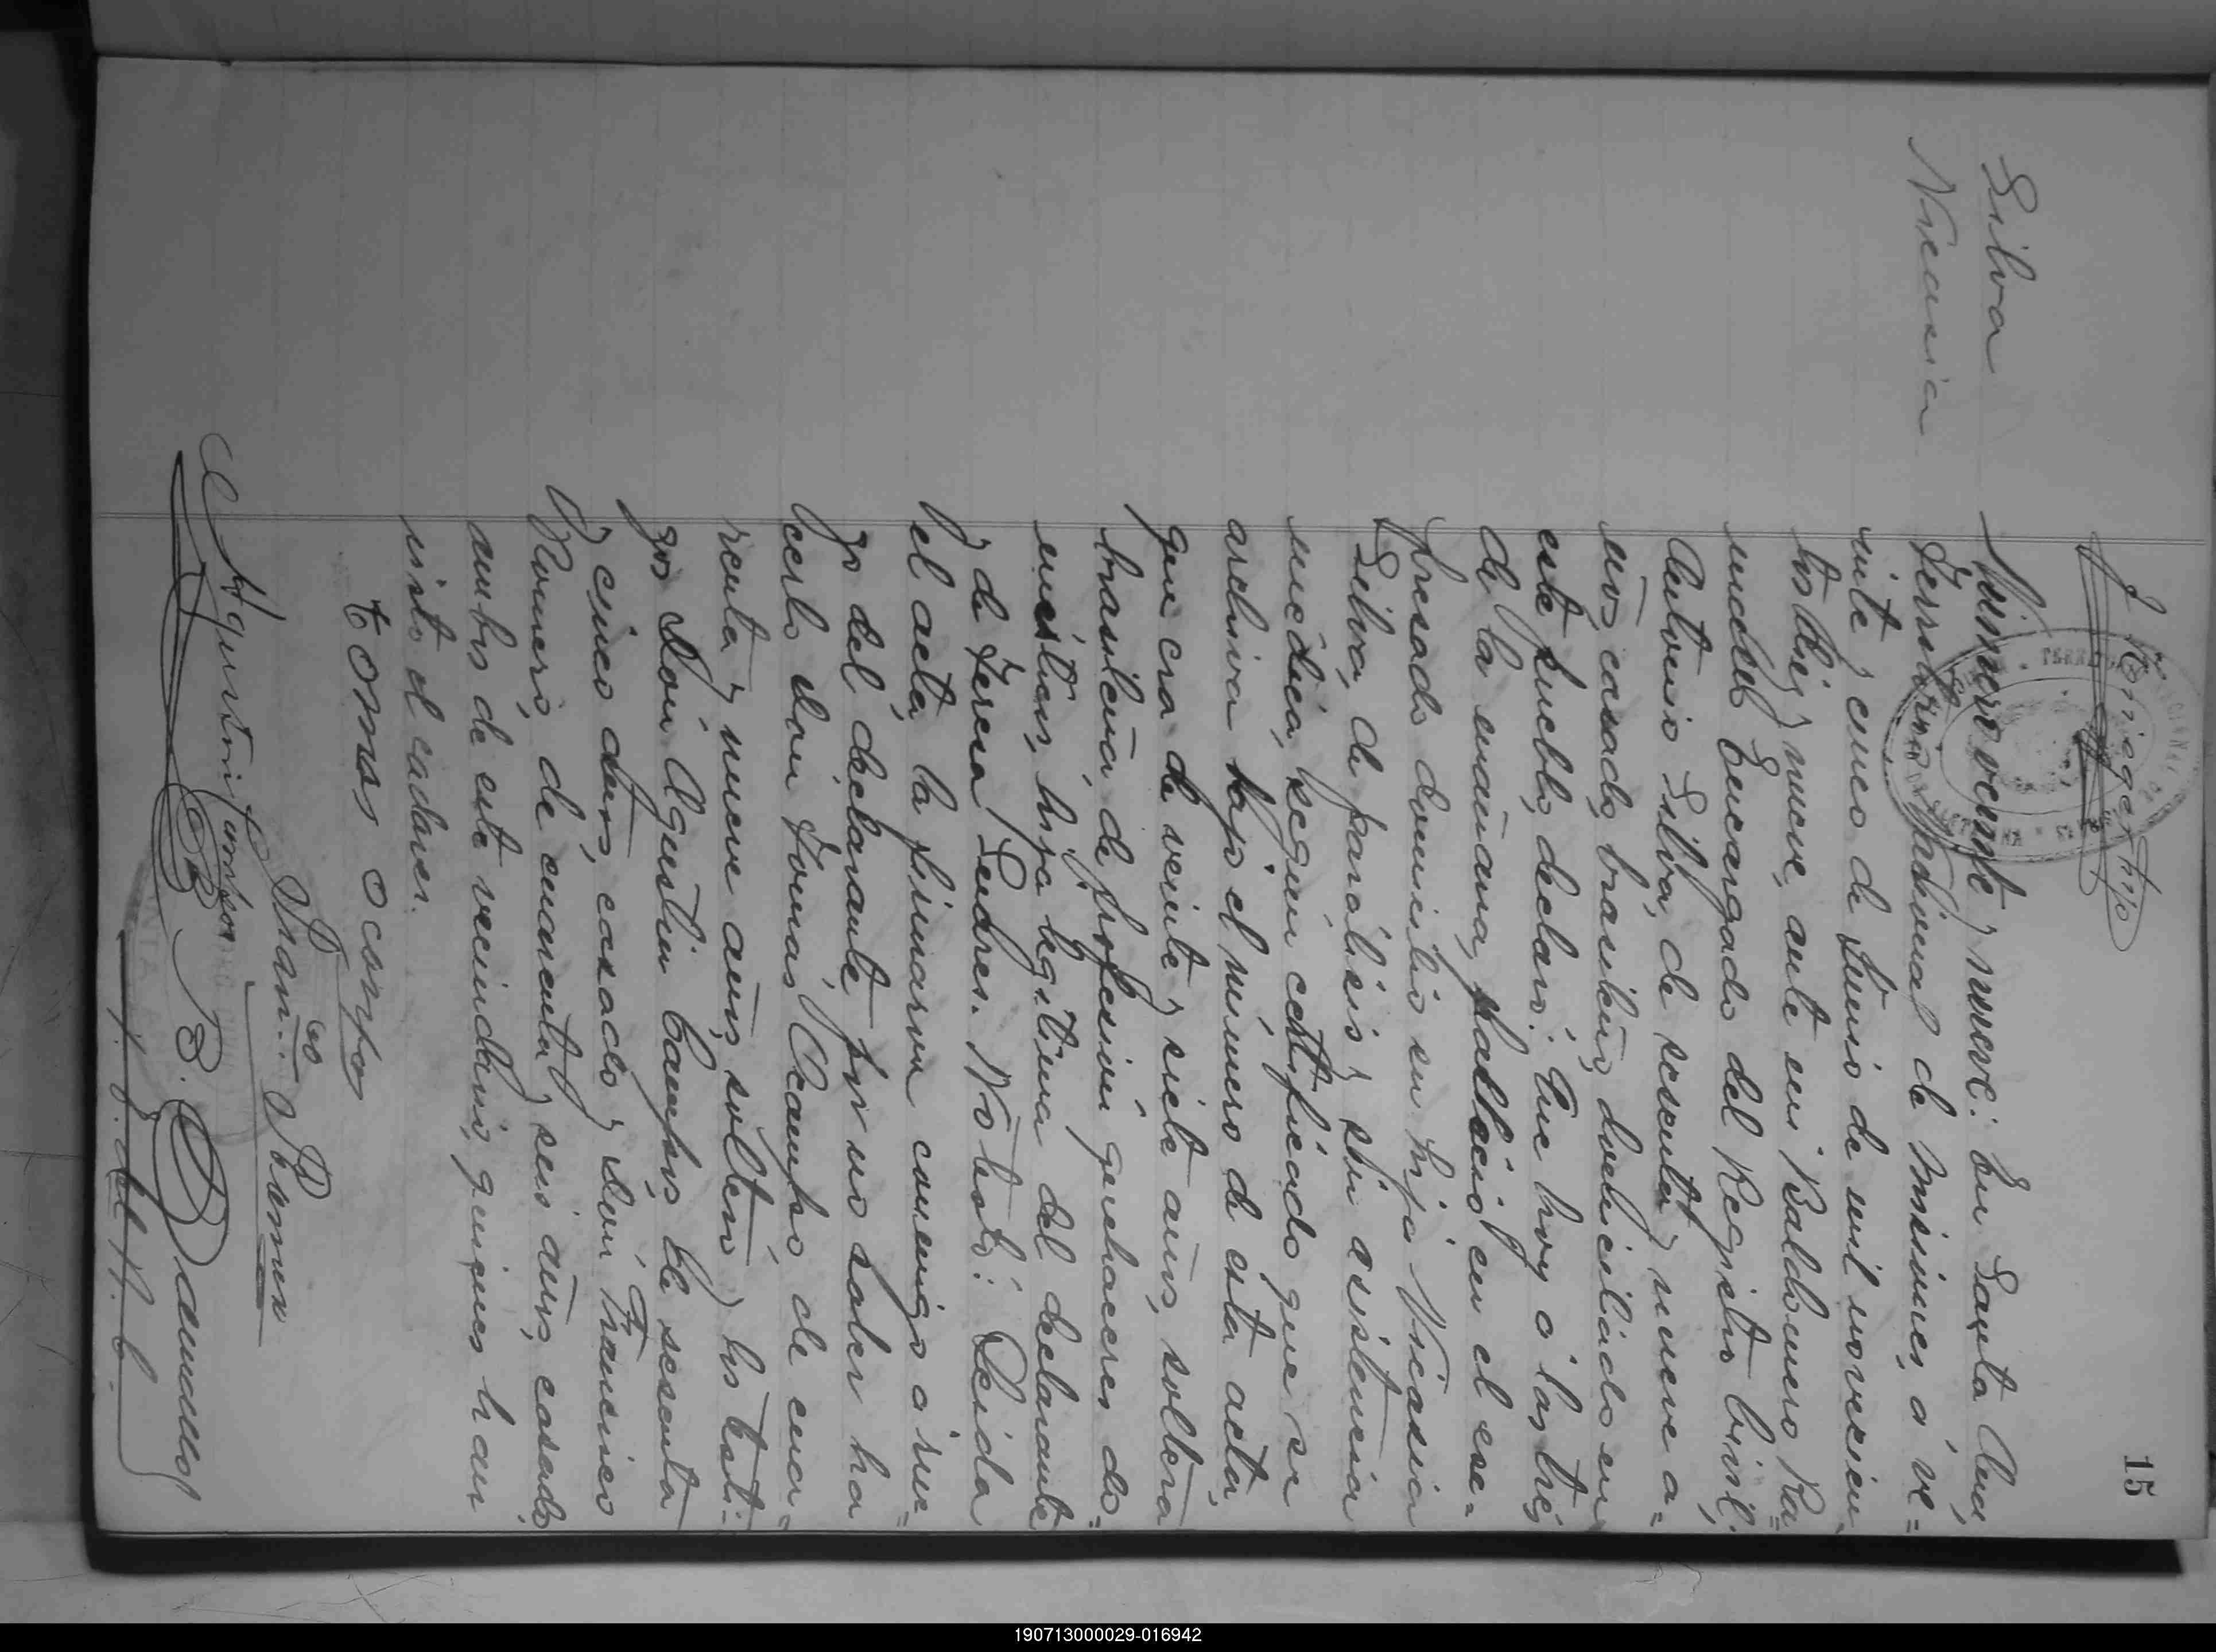 15
Silva
Nicasia
Número veinte y nueve: En Santa Ana,
Territorio Nacional de Misiones, á ve=
inte y cinco de Junio de mil novecien=
tos diez y nueve, ante mi Baldomero Ra=
mudell Encargado del Registro Civil,
Antonio Silva, de sesenta y nueve a=
ños, casado, brasileño, domiciliado en
este pueblo, declaró: Que hoy á las tres
de la mañana, falleció en el exe=
presado domicilio su hija Nicasia
Silva, de parálisis y sin asistencia
medica, según certificado que se
archiva bajo el número de esta acta,
que era de veinte y siete años, soltera
brasileña de profesión quehaceres do=
mésticos, hija legitima del declarante
y de Teresa Sudres. No testó: Leida
el acta, la firmaron conmigo á rue=
go del declarante por no saber ha
cerlo don Tomas Ocampo de cua=
renta y nueve años, soltero, y los testi=
gos Don Agustin Campos de sesenta
y cinco años, casado y Don Francisco
Romero, de cuarenta y seis años, casado,
ambos de este vecindario, quienes han
visto el cadaver.
tomas ocampos
Fran.co Romero
Agustin Campos
B. Ramudell
J. del R. C.
190713000029-016942